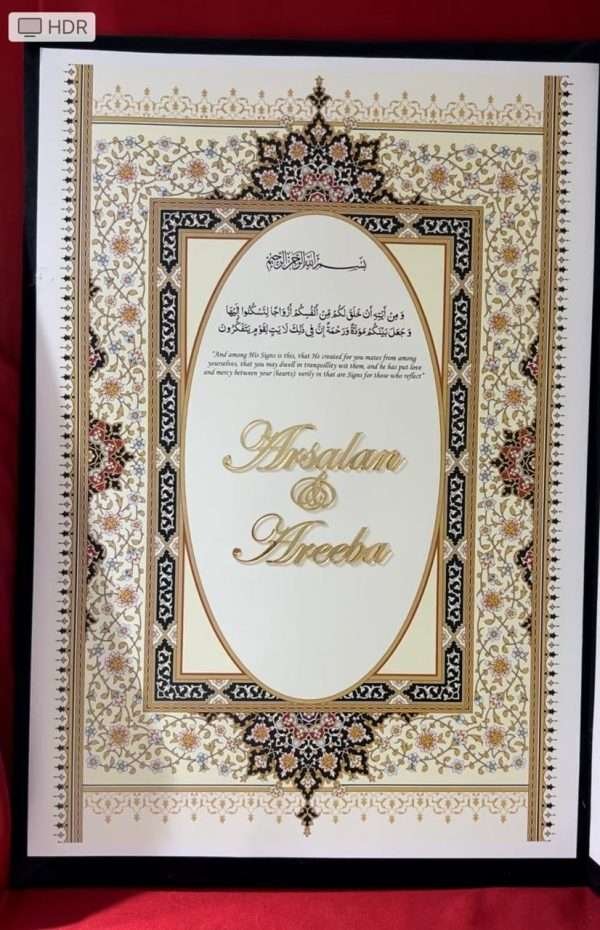 HDR
بسم الله الرحمن الرحيم
وَ مِنْ اٰيٰتِهٖ اَنْ خَلَقَ لَكُمْ مِّنْ اَنْفُسِكُمْ اَزْوَاجًا لِّتَسْكُنُوْا اِلَيْهَا
وَ جَعَلَ بَيْنَكُمْ مَوَدَّةً وَّ رَحْمَةً اِنَّ فِيْ ذٰلِكَ لَاٰ يٰتٍ لِّقَوْمٍ يَّتَفَكَّرُوْنَ
"And among His Signs is this, that He created for you mates from among
yourselves, that you may dwell in tranquillity wit them, and he has put love
and mercy between your (hearts): verily in that are Signs for those who reflect"
Arsalan
&
Areeba